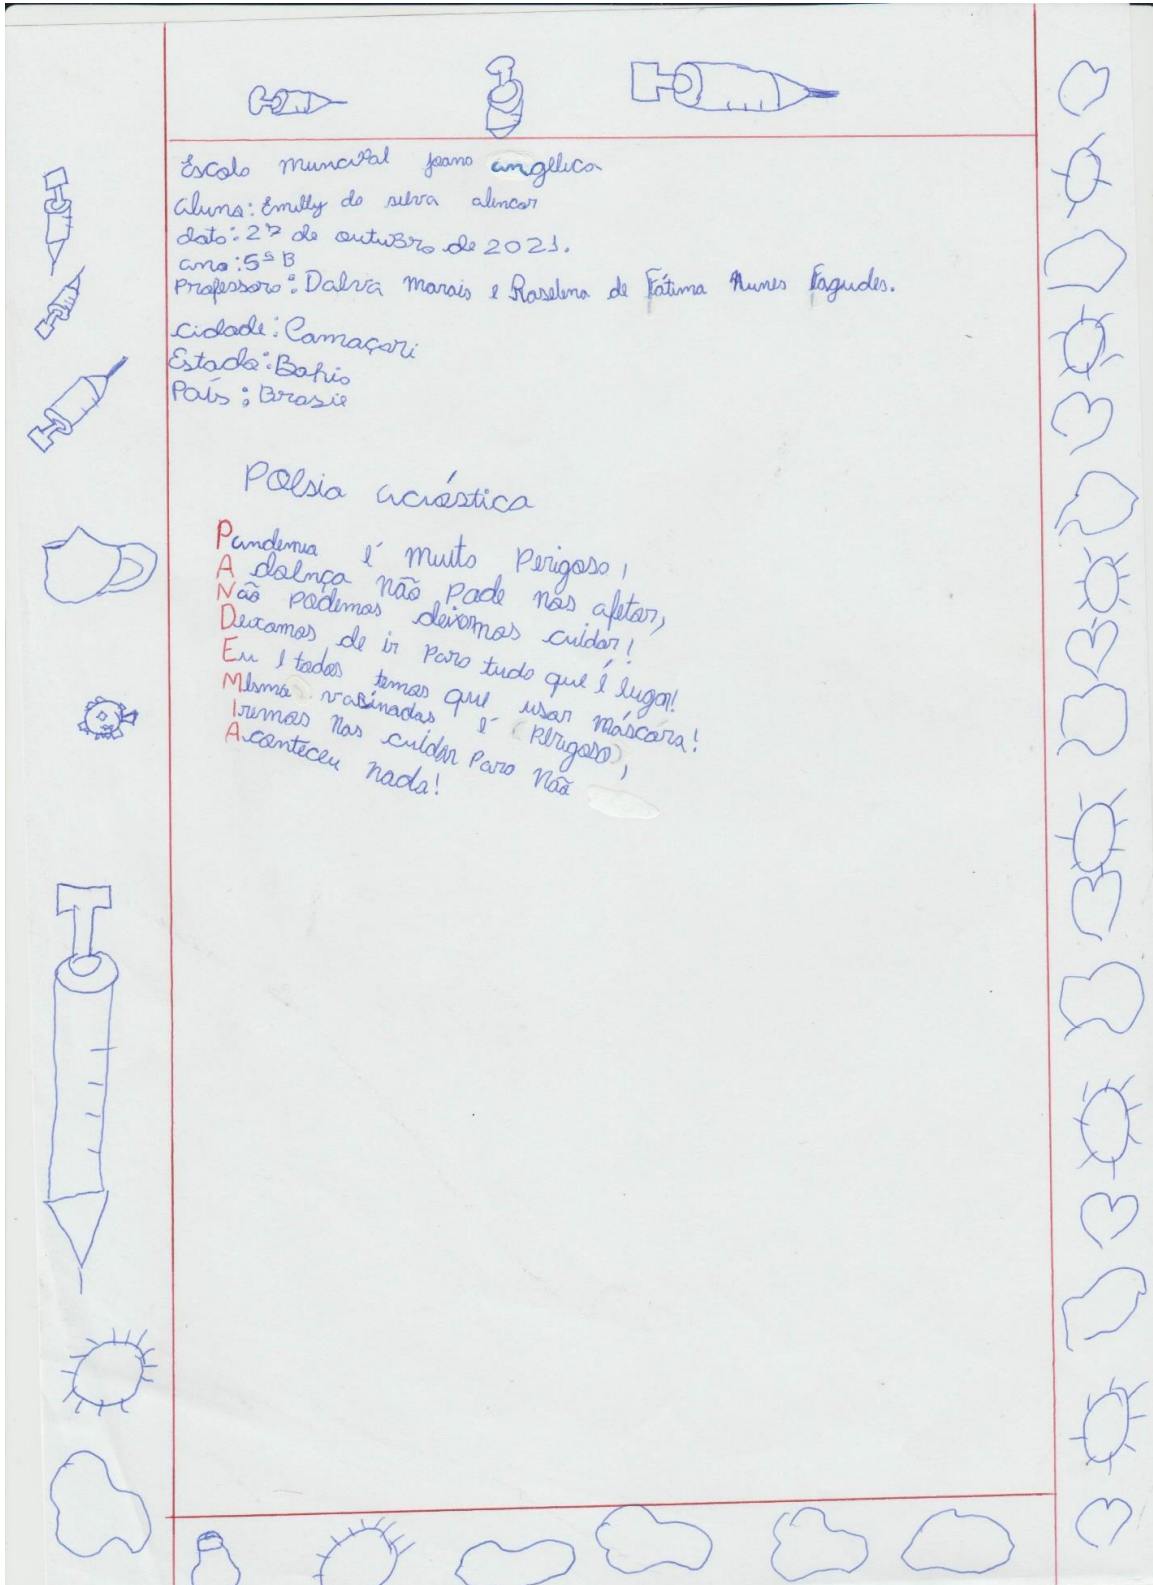 Escola muncipal joana angélica
aluna: Emilly da silva alencar
data: 27 de outubro de 2021.
ano: 5º B
Professora: Dalva Morais e Roselena de Fátima Nunes Fagudes.
cidade: Camaçari
Estado: Bahia
País: Brasil
Poesia acróstica
Pandemia é muito Perigoso,
A doença não pode nos afetar,
Não podemos deixamos cuidar!
Deixamos de ir Para tudo que é lugar!
Eu e todos temos que usar máscara!
Mesmo vasinados é (Perigoso),
Iremos nos cuidar Para não
Aconteceu nada!